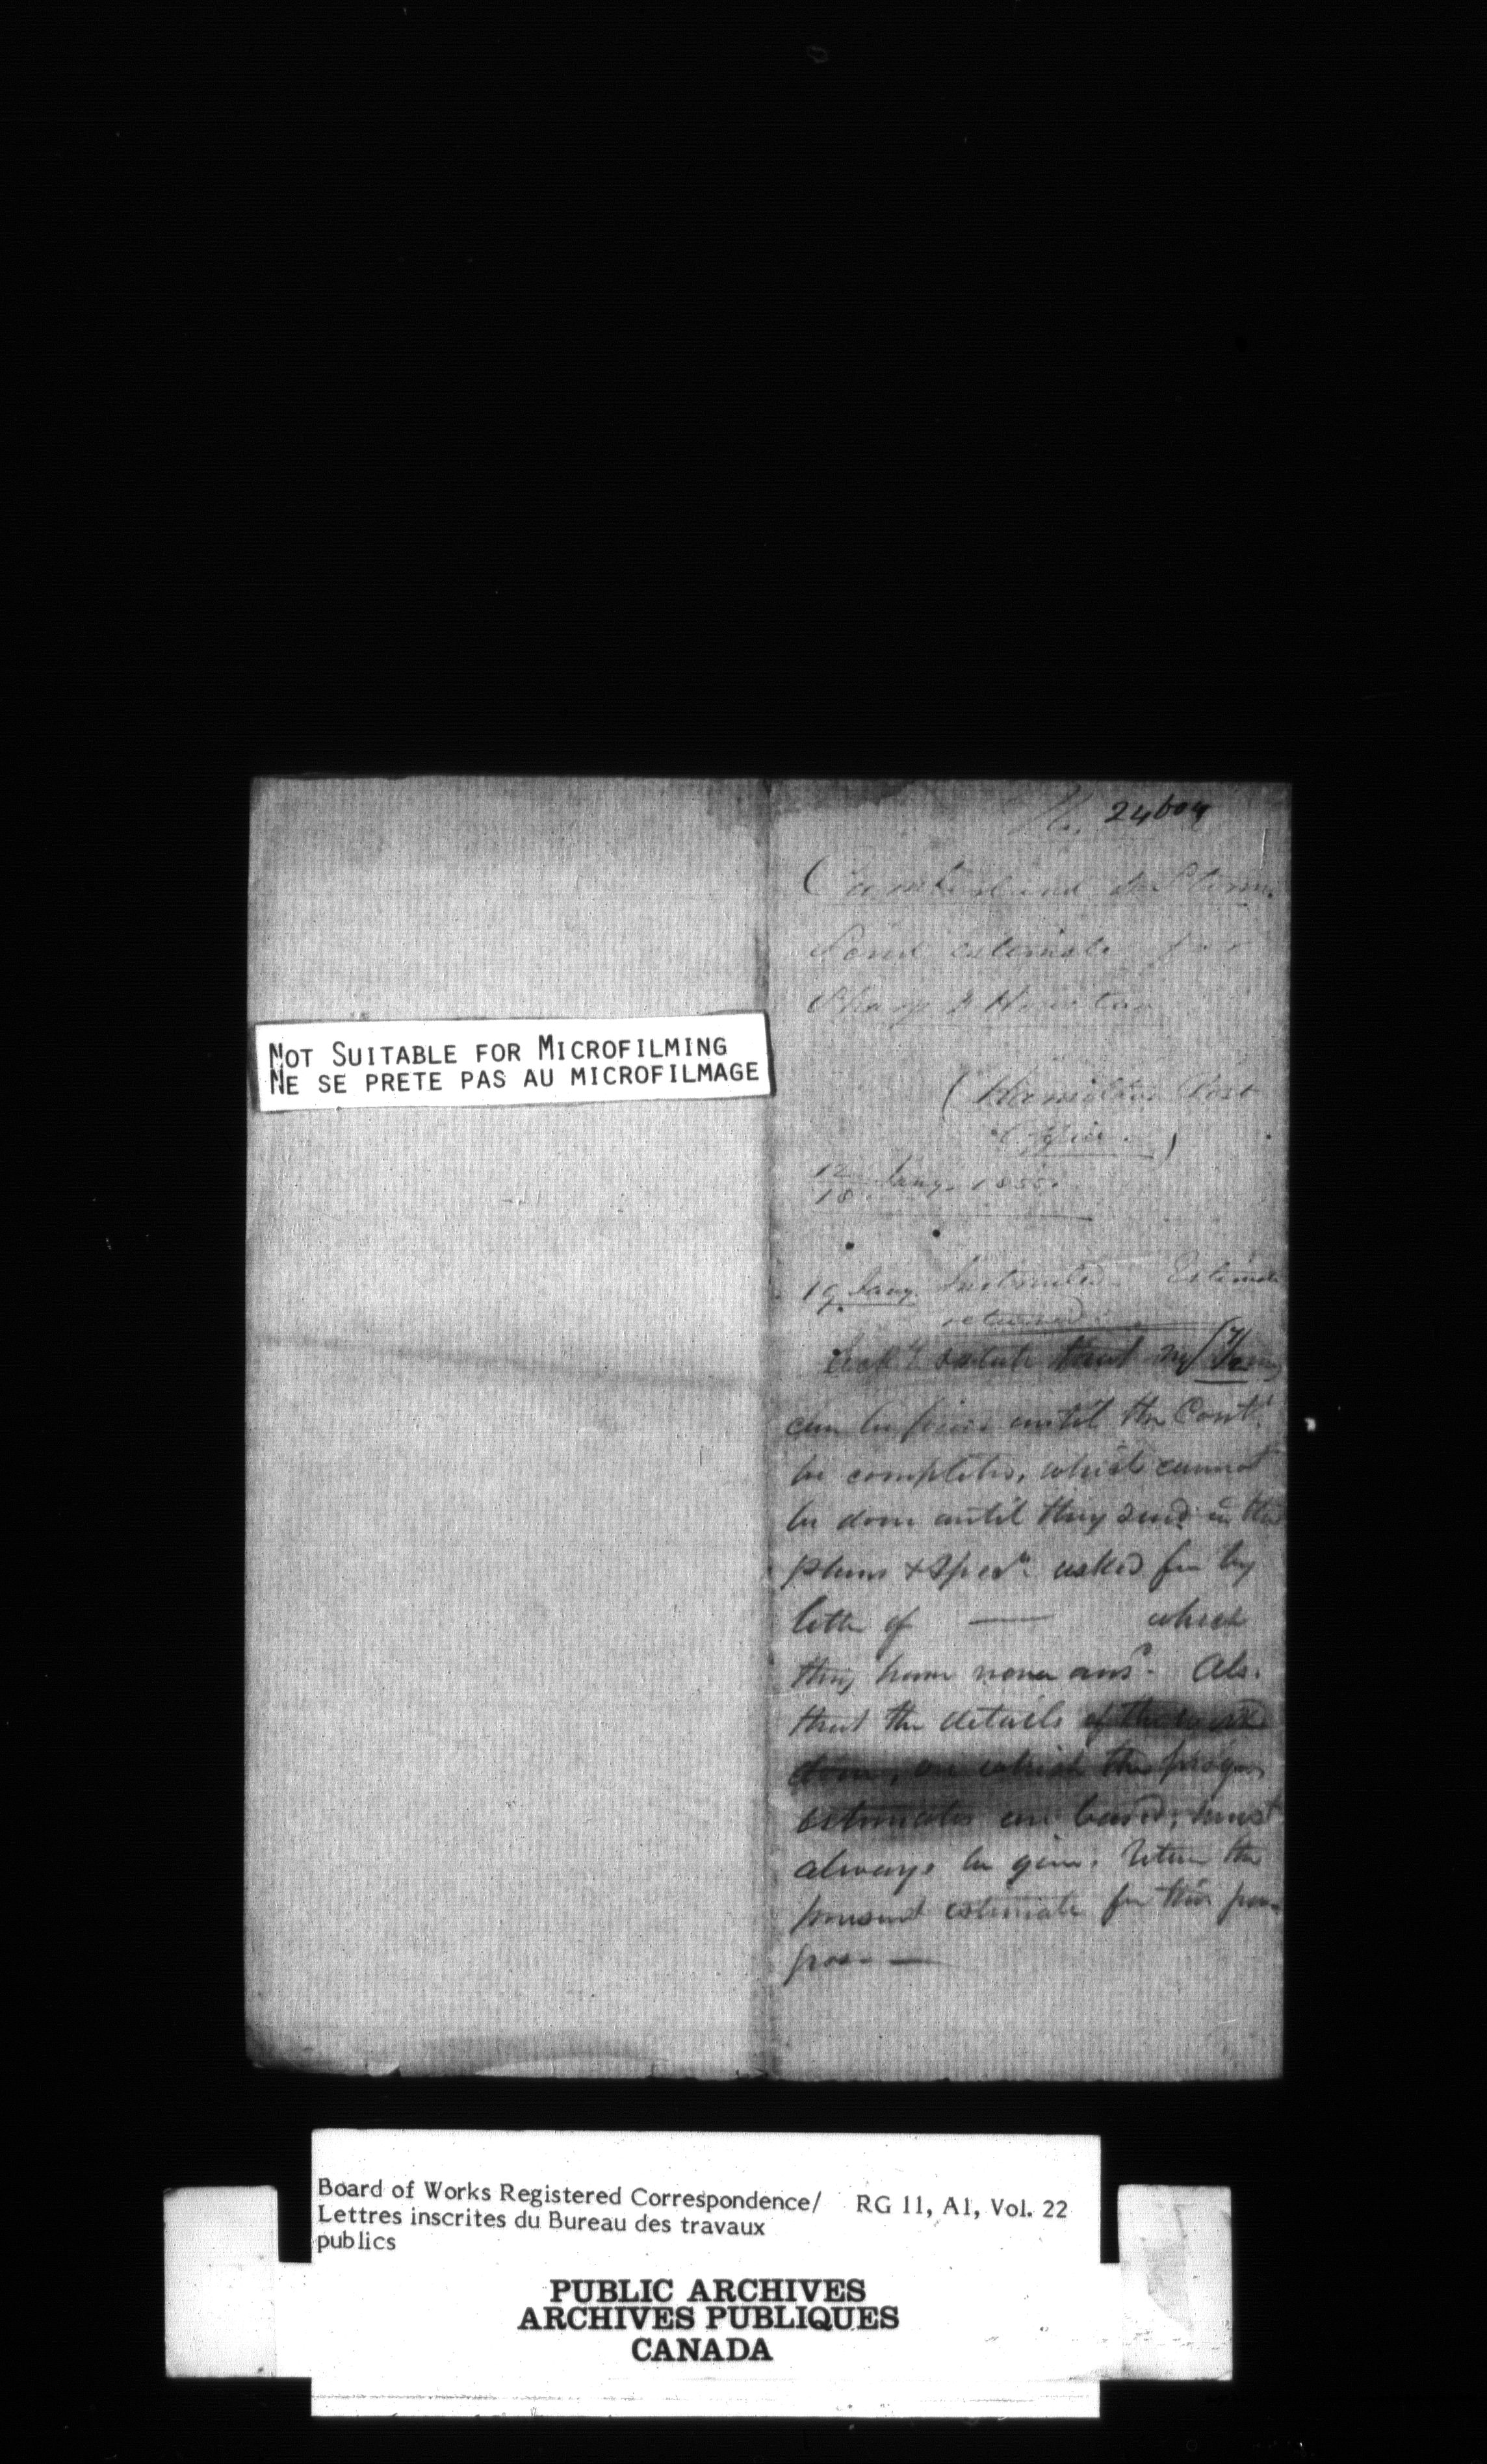 NOT SUITABLE FOR MICROFILMING
NE SE PRETE PAS AU MICROFILMAGE
Cumberland & Storm
Send estimate for
Sharp &
(Hamilton Post
Office.)
12
18 Jany. 1855.
19 Jany. Instructed. Estimate
returned.
that
until the Cont.
be completed, which cannot
be done until they send in the
plans & Specn. asked for by
letter of — which
they have never ansd. Also
that the details of the work
done, on which the progress
estimates are based, must
always be given. Return the
present estimate for this pur-
pose —
Board of Works Registered Correspondence/ RG 11, A1, Vol. 22
Lettres inscrites du Bureau des travaux
publics
PUBLIC ARCHIVES
ARCHIVES PUBLIQUES
CANADA